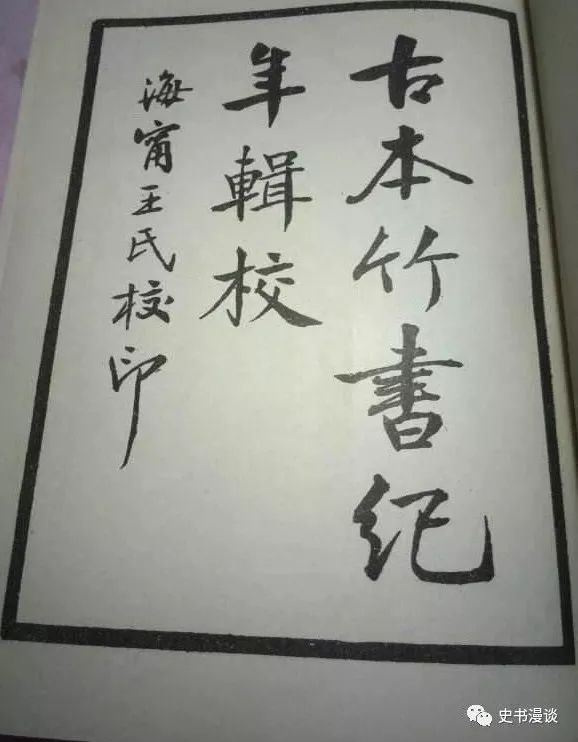 古本竹書紀
年輯校
海甯王氏校印
史书漫谈